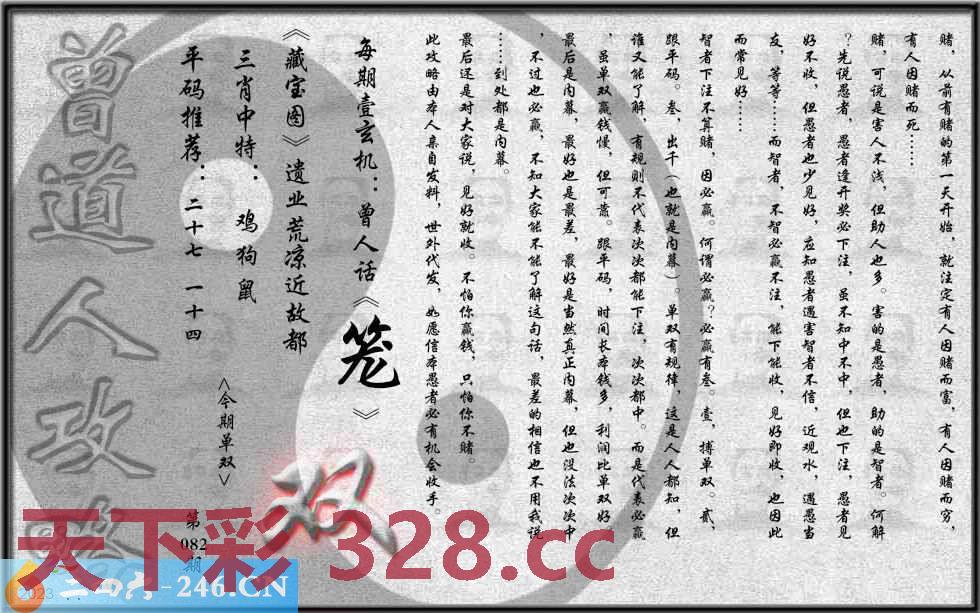 赌，从前有赌的第一天开始，就注定有人因赌而富，有人因赌而穷，
有人因赌而死……
赌，可说是害人不浅，但助人也多。害的是愚者，助的是智者。何解
？先说愚者，愚者逢开奖必下注，虽不知中不中，但也下注，愚者见
好不收，但愚者也少见好，应知愚者遇害智者不信，近观水，遇愚当
友，等等……而智者，不智必赢不注，能下能收，见好即收，也因此
而常见好……
智者下注不算赌，因必赢。何谓必赢？必赢有叁。壹，搏单双。贰，
跟平码。叁，出千（也就是内幕）。单双有规律，这是人人都知，但
谁又能了解，有规则不代表次次都能下注，次次都中。而是代表必赢
，虽单双赢钱慢，但可靠。跟平码，时间长本钱多，利润比单双好。
最后是内幕，最好也是最差，最好是当然真正内幕，但也没法次次中
，不过也必赢，不知大家能不能了解这句话，最差的相信也不用我说
……到处都是内幕。
最后还是对大家说，见好就收。不怕你赢钱，只怕你不赌。
此攻略由本人亲自发料，世外代发，如愿信本愚者必有机会收手。
每期壹玄机：曾人话《笼》
《藏宝图》遗业荒凉近故都
三肖中特：鸡狗鼠
平码推荐：二十七 一十四
<今期单双>
双
第082期
曾道人攻略
天下彩 328.cc
二四六-246.CN
2023